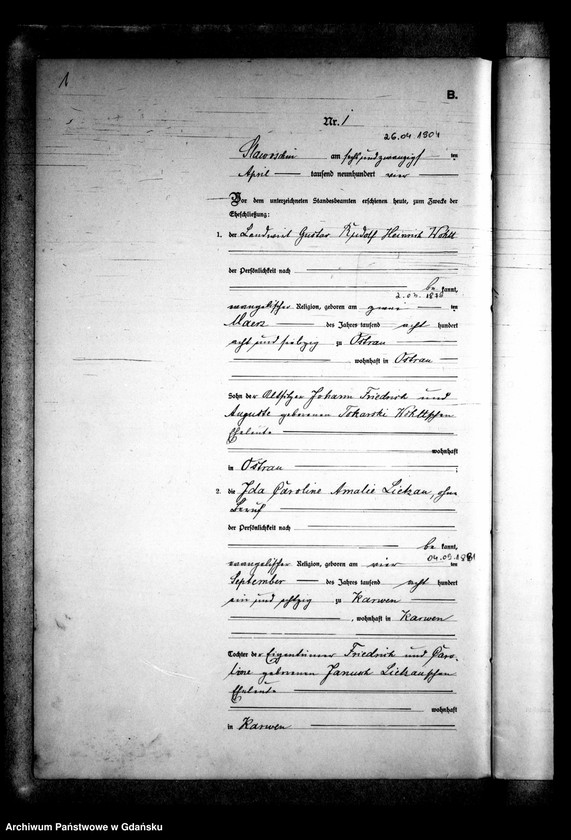 1
B.
Nr. 1
26.04.1904
Slawoschin am sechsundzwanzigsten
April tausend neunhundert vier
Vor dem unterzeichneten Standesbeamten erschienen heute, zum Zwecke der
Eheschließung:
1. der Landwirt Gustav Rudolf Heinrich Wohlt
der Persönlichkeit nach
be kannt,
2.03.1878
evangelischer Religion, geboren am zwei ten
Maerz des Jahres tausend acht hundert
acht und siebzig zu Ostrau
, wohnhaft in Ostrau
Sohn der Altsitzer Johann Friedrich und
Auguste geborenen Tokarski Wohltschen
Eheleute
wohnhaft
in Ostrau
2. die Ida Caroline Amalie Lietzau, ohne
Beruf
der Persönlichkeit nach
be kannt,
04.09.1881
evangelischer Religion, geboren am vier ten
September des Jahres tausend acht hundert
ein und achtzig zu Karwen
, wohnhaft in Karwen
Tochter der Eigentümer Friedrich und Caro-
line geborenen Januch Lietzauschen
Eheleute
wohnhaft
in Karwen
Archiwum Państwowe w Gdańsku